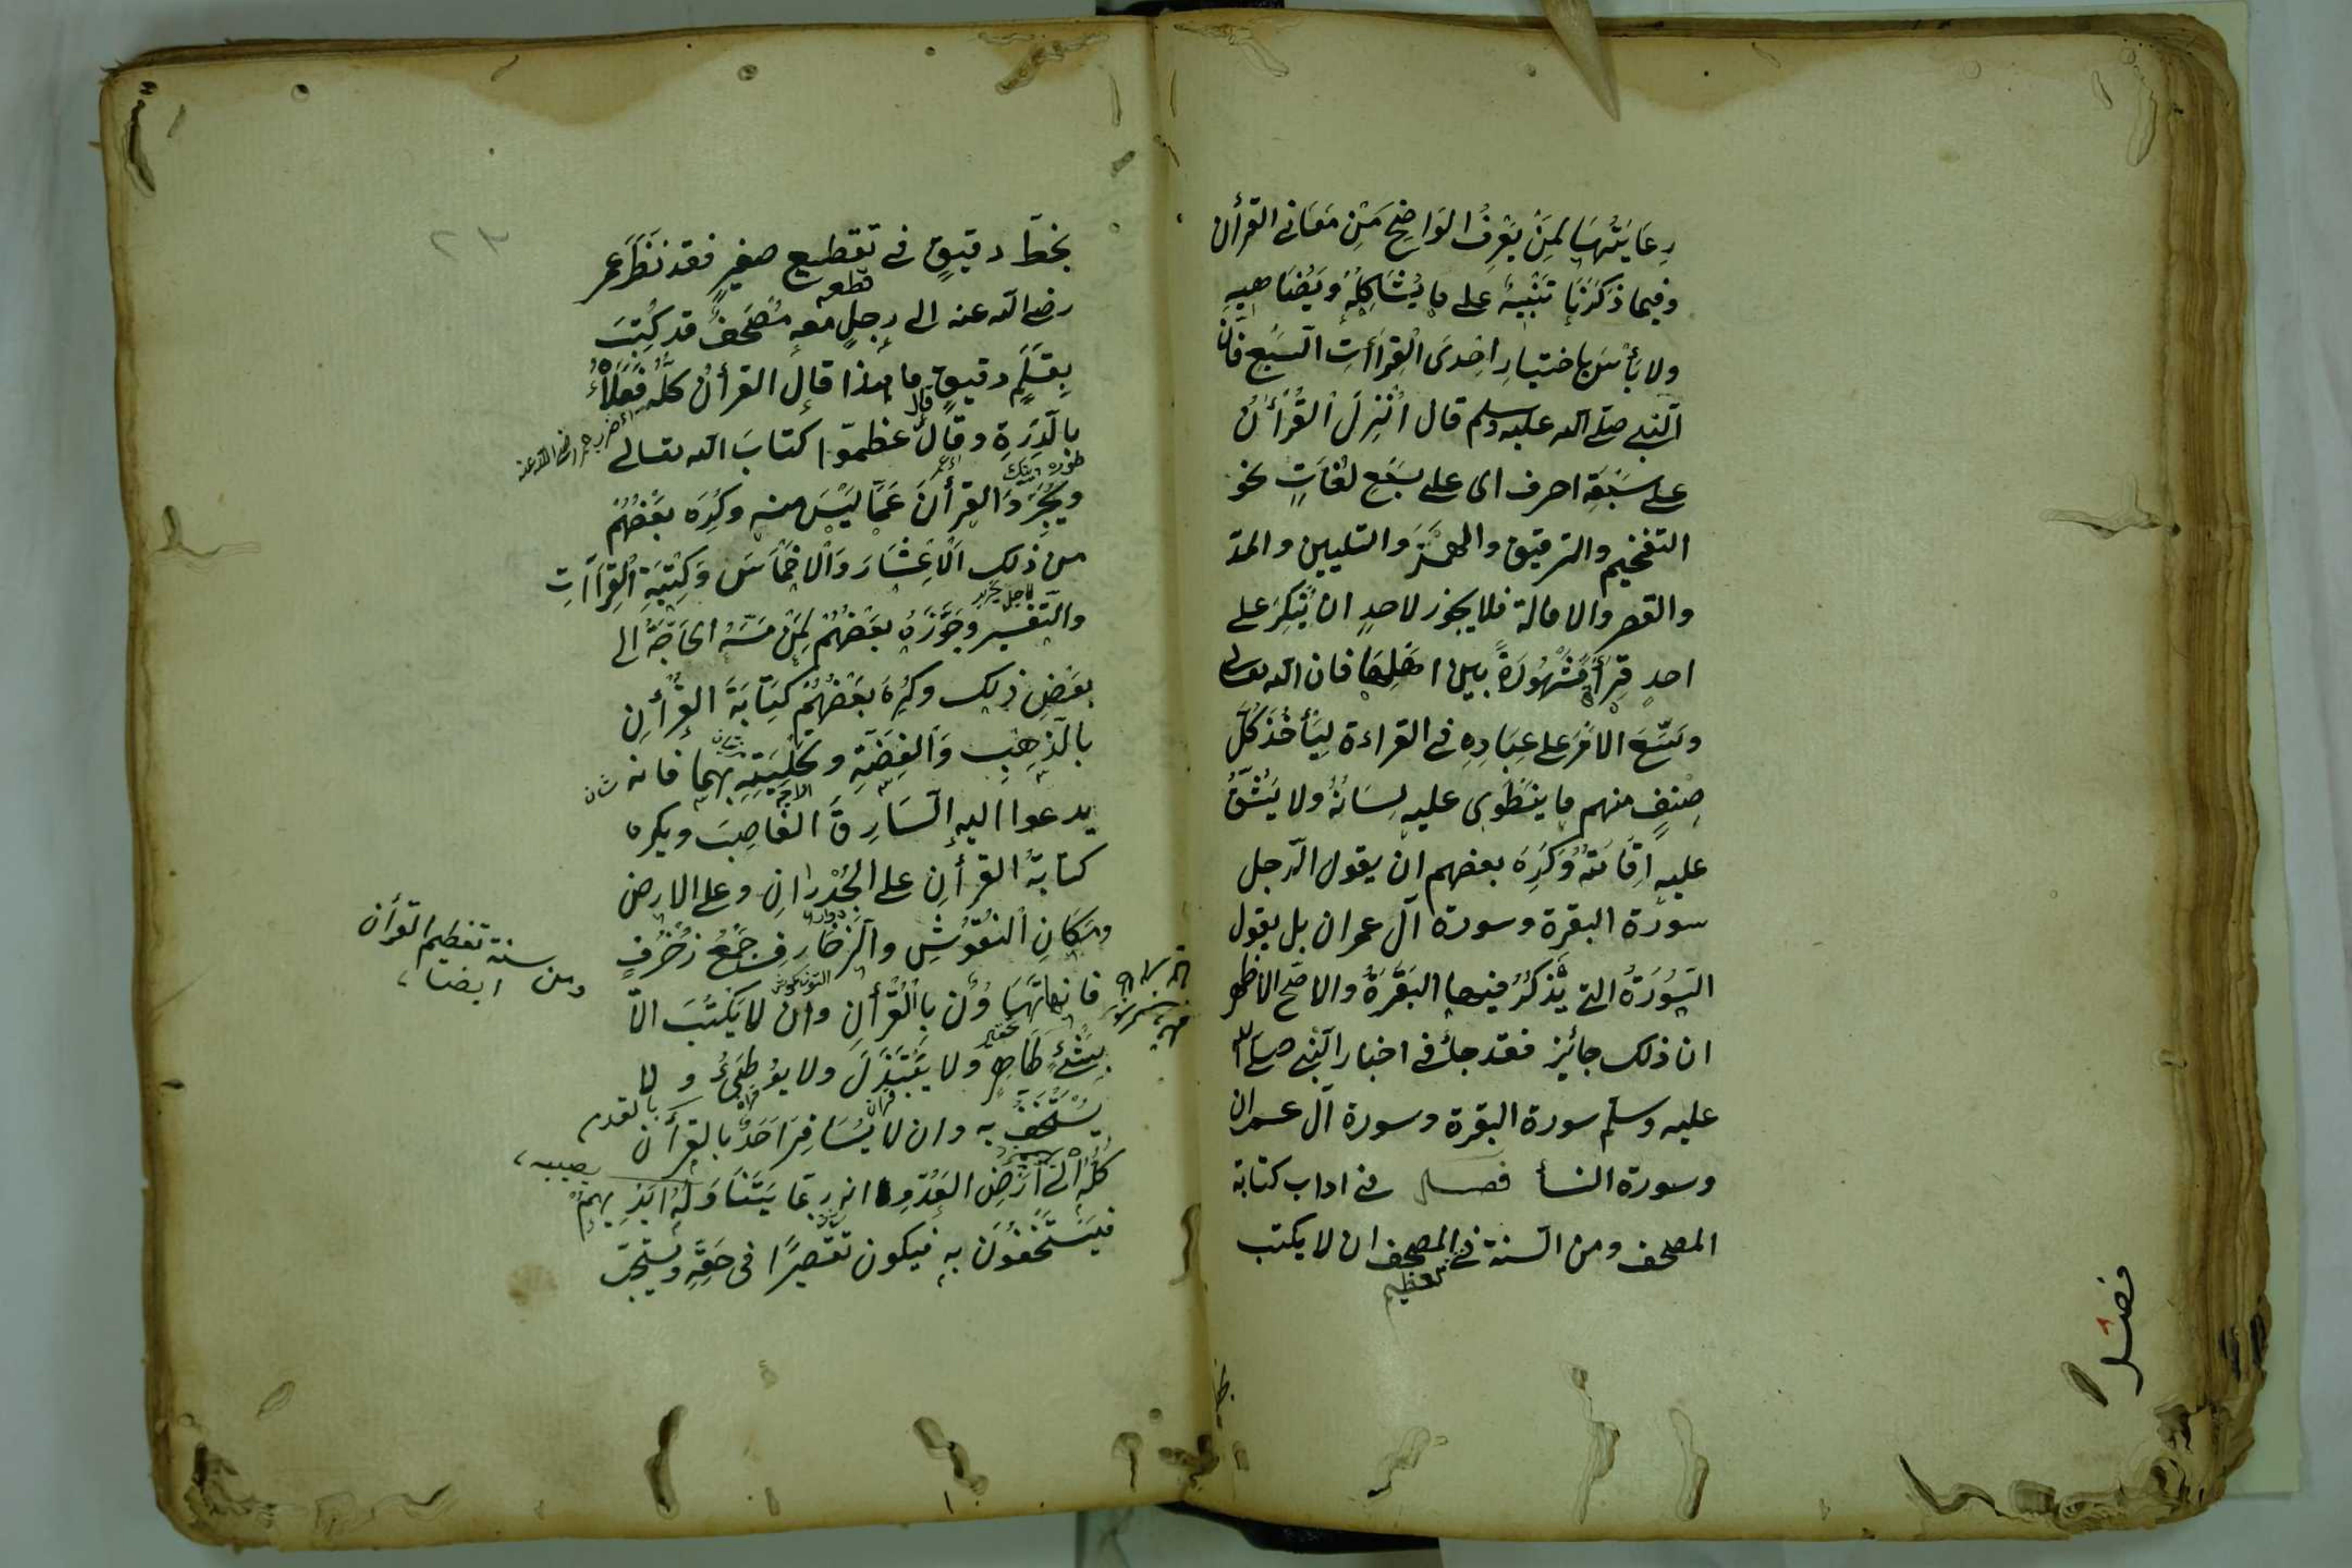 رِعَايَتُهَا لِمَنْ يَعْرِفُ الوَاضِحَ مِنْ مَعَانِى القرأن
وفيما ذكرنا تَنْبِيهٌ على ما يُشَاكِلُهُ وَيُضَاهِيهِ
ولا بَأْسَ باختيارِ اِحْدَى الْقِرَاأتِ السَّبْعِ فَاِنَّ
النَّبِىَ صلّى الله عليه وسلم قال اُنْزِلَ الْقُرْأنُ
على سَبْعَةِ احرف اى على سَبْعِ لُغَاتٍ نحو
التفخيم والترقيق والهمْزِ والتليين والمدّ
والقصر والامالة فلا يجوز لاحدٍ ان يُنْكِرَ على
احدٍ قِرْأةً مَشْهُورَةً بين اهلِهَا فان الله تعالى
وسَّعَ الاَمْرَ على عِبَادِهِ فى القراءة لِيَأْخُذَ كُلُّ
صِنْفٍ منهم ما ينطوى عليه لِسَانُهُ ولا يَشُقُّ
عليه اِقَامَتُهُ وَكَرِهَ بعضهم ان يقول الرّجل
سورة البقرة وسورة آل عمران بل يقول
السُّورَةُ التى يُذْكَرُ فيها البَقَرَةُ والاصّح الاظهر
ان ذلك جائِز فقد جاءَ فى اخبار النَّبِى صلّى الله
عليه وسلّم سورة البقرة وسورة آل عمران
وسورة النسأ فصل فى اداب كتابة
المصحف ومن السنة فى المصحف ان لا يكتب
تعظيم
فصل
بخطّ دقيقٍ فى تقطيع صغيرٍ فقد نَظَرَ عمر
قطعه
رضى الله عنه الى رجلٍ معه مُصْحَفٌ قد كُتِبَ
بِقَلَمٍ دقيقٍ ما هذا قال القرأنُ كلُّه فَعَلَاهُ
بالدِّرَةِ وقال عظمّوا كتابَ الله تعالى
ويُجَرَّدَ القرأنَ عَمَّا لَيْسَ منه وكَرِهَ بعضُهُمْ
من ذلك اَلْاَعْشَارَ وَالْاَخْمَاسَ وَكِتْبَةَ الْقِرَاآتِ
والتّفسير وجَوَّزَهُ بعضُهُمْ لِمَنْ مَسَّهُ الحَاجَةُ الى
بعَضِ ذلك وكَرِهَ بَعْضُهُمْ كِتَابَةَ القُرْأنِ
بالذَّهَبِ وَالْفِضَّةِ وتَحْلِيَتِهِ بهما فانه
يدعوا اليه السَّارِقَ الغَاصِبَ ويكره
كتابةُ القرأنِ على الجُدْرَانِ وعلى الارض
ومَكَانِ النُّقُوشِ والزَّخَارِفِ جَمْعُ زُخْرُفٍ
ومن سنة تعظيم القرأن
ايضا
فانها تَهَاوُن بِالْقُرْأنِ وان لا يَكْتُبَ الاّ
بِشَئٍ طَاهِرٍ ولا يَبْتَذِلَ ولا يُوطِئُ و لا
بالقدم
يُسْتَخَفَّ به وان لا يُسَافِرَ اَحَدٌ بالقرأن
كلِّهِ اِلى اَرْضِ العَدُوِّ انه رِبما يَتَنَاوَلُهُ اَيْدِيهِمْ
فَيَسْتَخِفُّونَ به فيكون تقصيرًا فى حَقِّهِ ويُستحَبّ